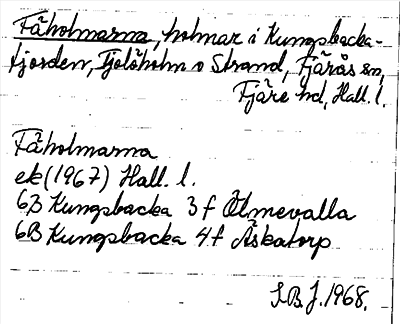 Fåholmarna, holmar i Kungsbacka-
fjorden, Tjolöholm o Strand, Fjärås sn,
Fjäre hd, Hall. l.
Fåholmarna
ek (1967) Hall. l.
6B Kungsbacka 3f Ölmevalla
6B Kungsbacka 4f Åskatorp
S.B.J. 1968.